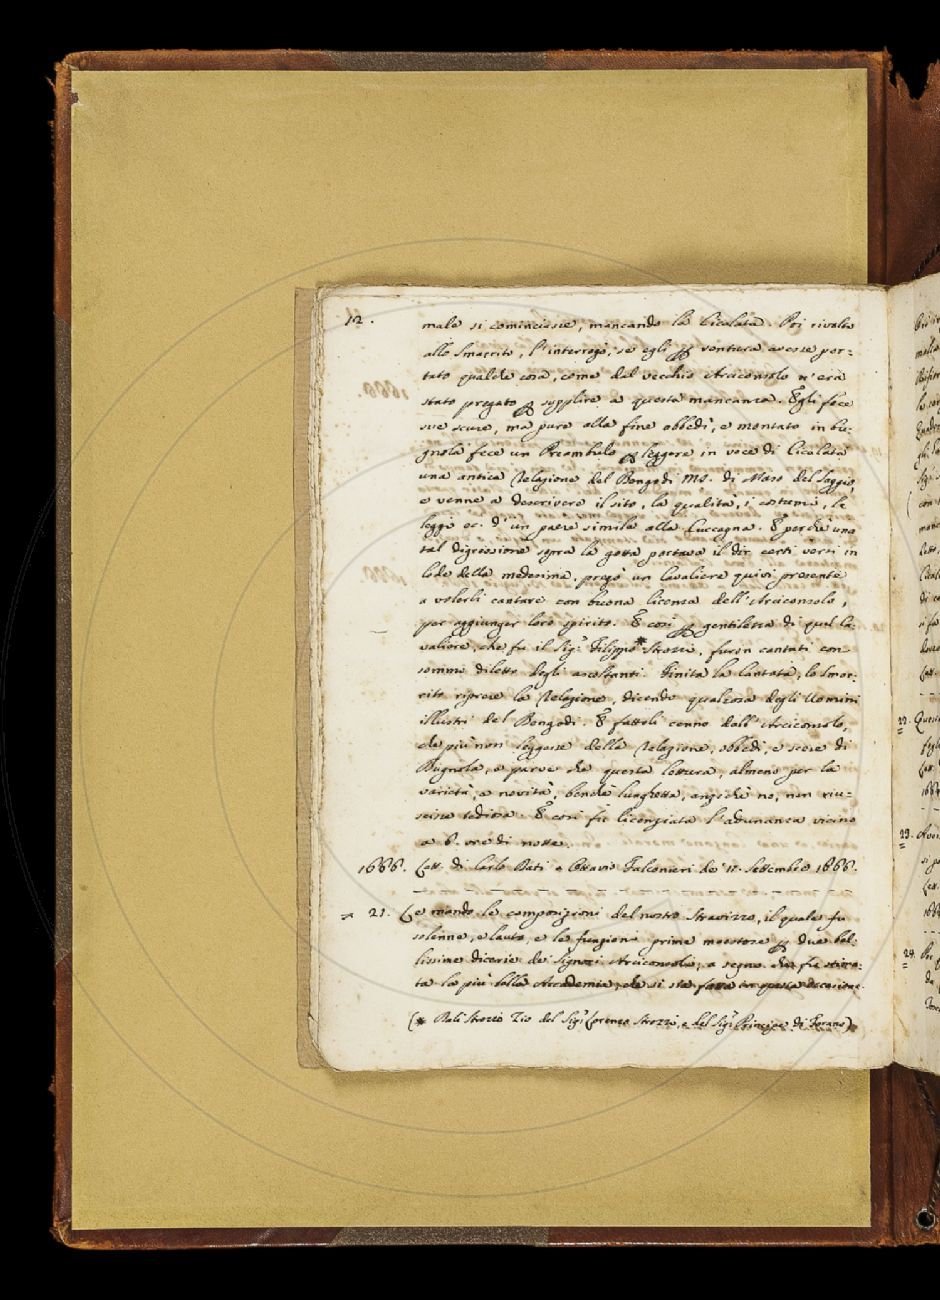 12.
male si cominciasse, mancando la Cicalata. Poi rivolto
allo Smarrito, l'interrogò, se egli per ventura avesse por=
tato qualche cosa, come dal vecchio Arciconsolo n'era
stato pregato per supplire a questa mancanza. Egli fece
sue scuse, ma pure alla fine obbedì, e montato in bu=
gnola fece un Preambulo per leggere in vece di Cicalata
una antica Relazione del Bengodi MS. di Maso del Saggio,
e venne a descrivere il sito, la qualità, i costumi, le
leggi ec. d'un paese simile alla Cuccagna. E perchè una
tal digressione sopra la gotta portava il dir certi versi in
lode della medesima, pregò un Cavaliere quivi presente
a volerli cantare con buona licenza dell'Arciconsolo,
per aggiunger loro spirito. E così per gentilezza di quel Ca=
valiere, che fu il Sig.r Filippo * Strozzi, furon cantati con
sommo diletto degli ascoltanti. Finita la Cantata, lo Smar=
rito riprese la Relazione, dicendo qualcosa degli Uomini
illustri del Bengodi. E fattoli cenno dall'Arciconsolo,
che più non leggesse della Relazione, obbedì, e scese di
Bugnola, e parve che questa lettura, almeno per la
varietà, e novità, benchè lunghetta, anzichè no, non riu=
scisse tediosa. E così fu licenziata l'adunanza vicino
a 6. ore di notte.
1666. Lett. di Carlo Dati a Ottavio Falconieri de' 11. Settembre 1666.
21. Le mando le composizioni del nostro Stravizzo, il quale fu
solenne, e lauto, e le funzioni prime maestose per due bel=
lissime dicerie de' Signori Arciconsoli, a segno che fu stima=
ta la più bella Accademia, che si sia fatta in questa occasione.
(* Balì Strozzi Zio del Sig.r Lorenzo Strozzi, e del Sig.r Principe di Forano)
22.
23.
24.